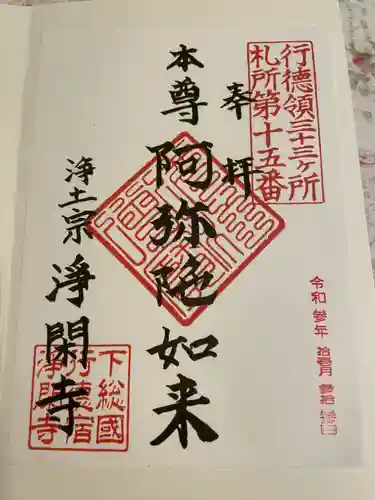 行德領三十三ヶ所
札所第十五番
奉拝
本尊阿弥陀如来
浄土宗
淨閑寺
令和参年拾壹月参拾
下総國
行徳宿
淨閑寺